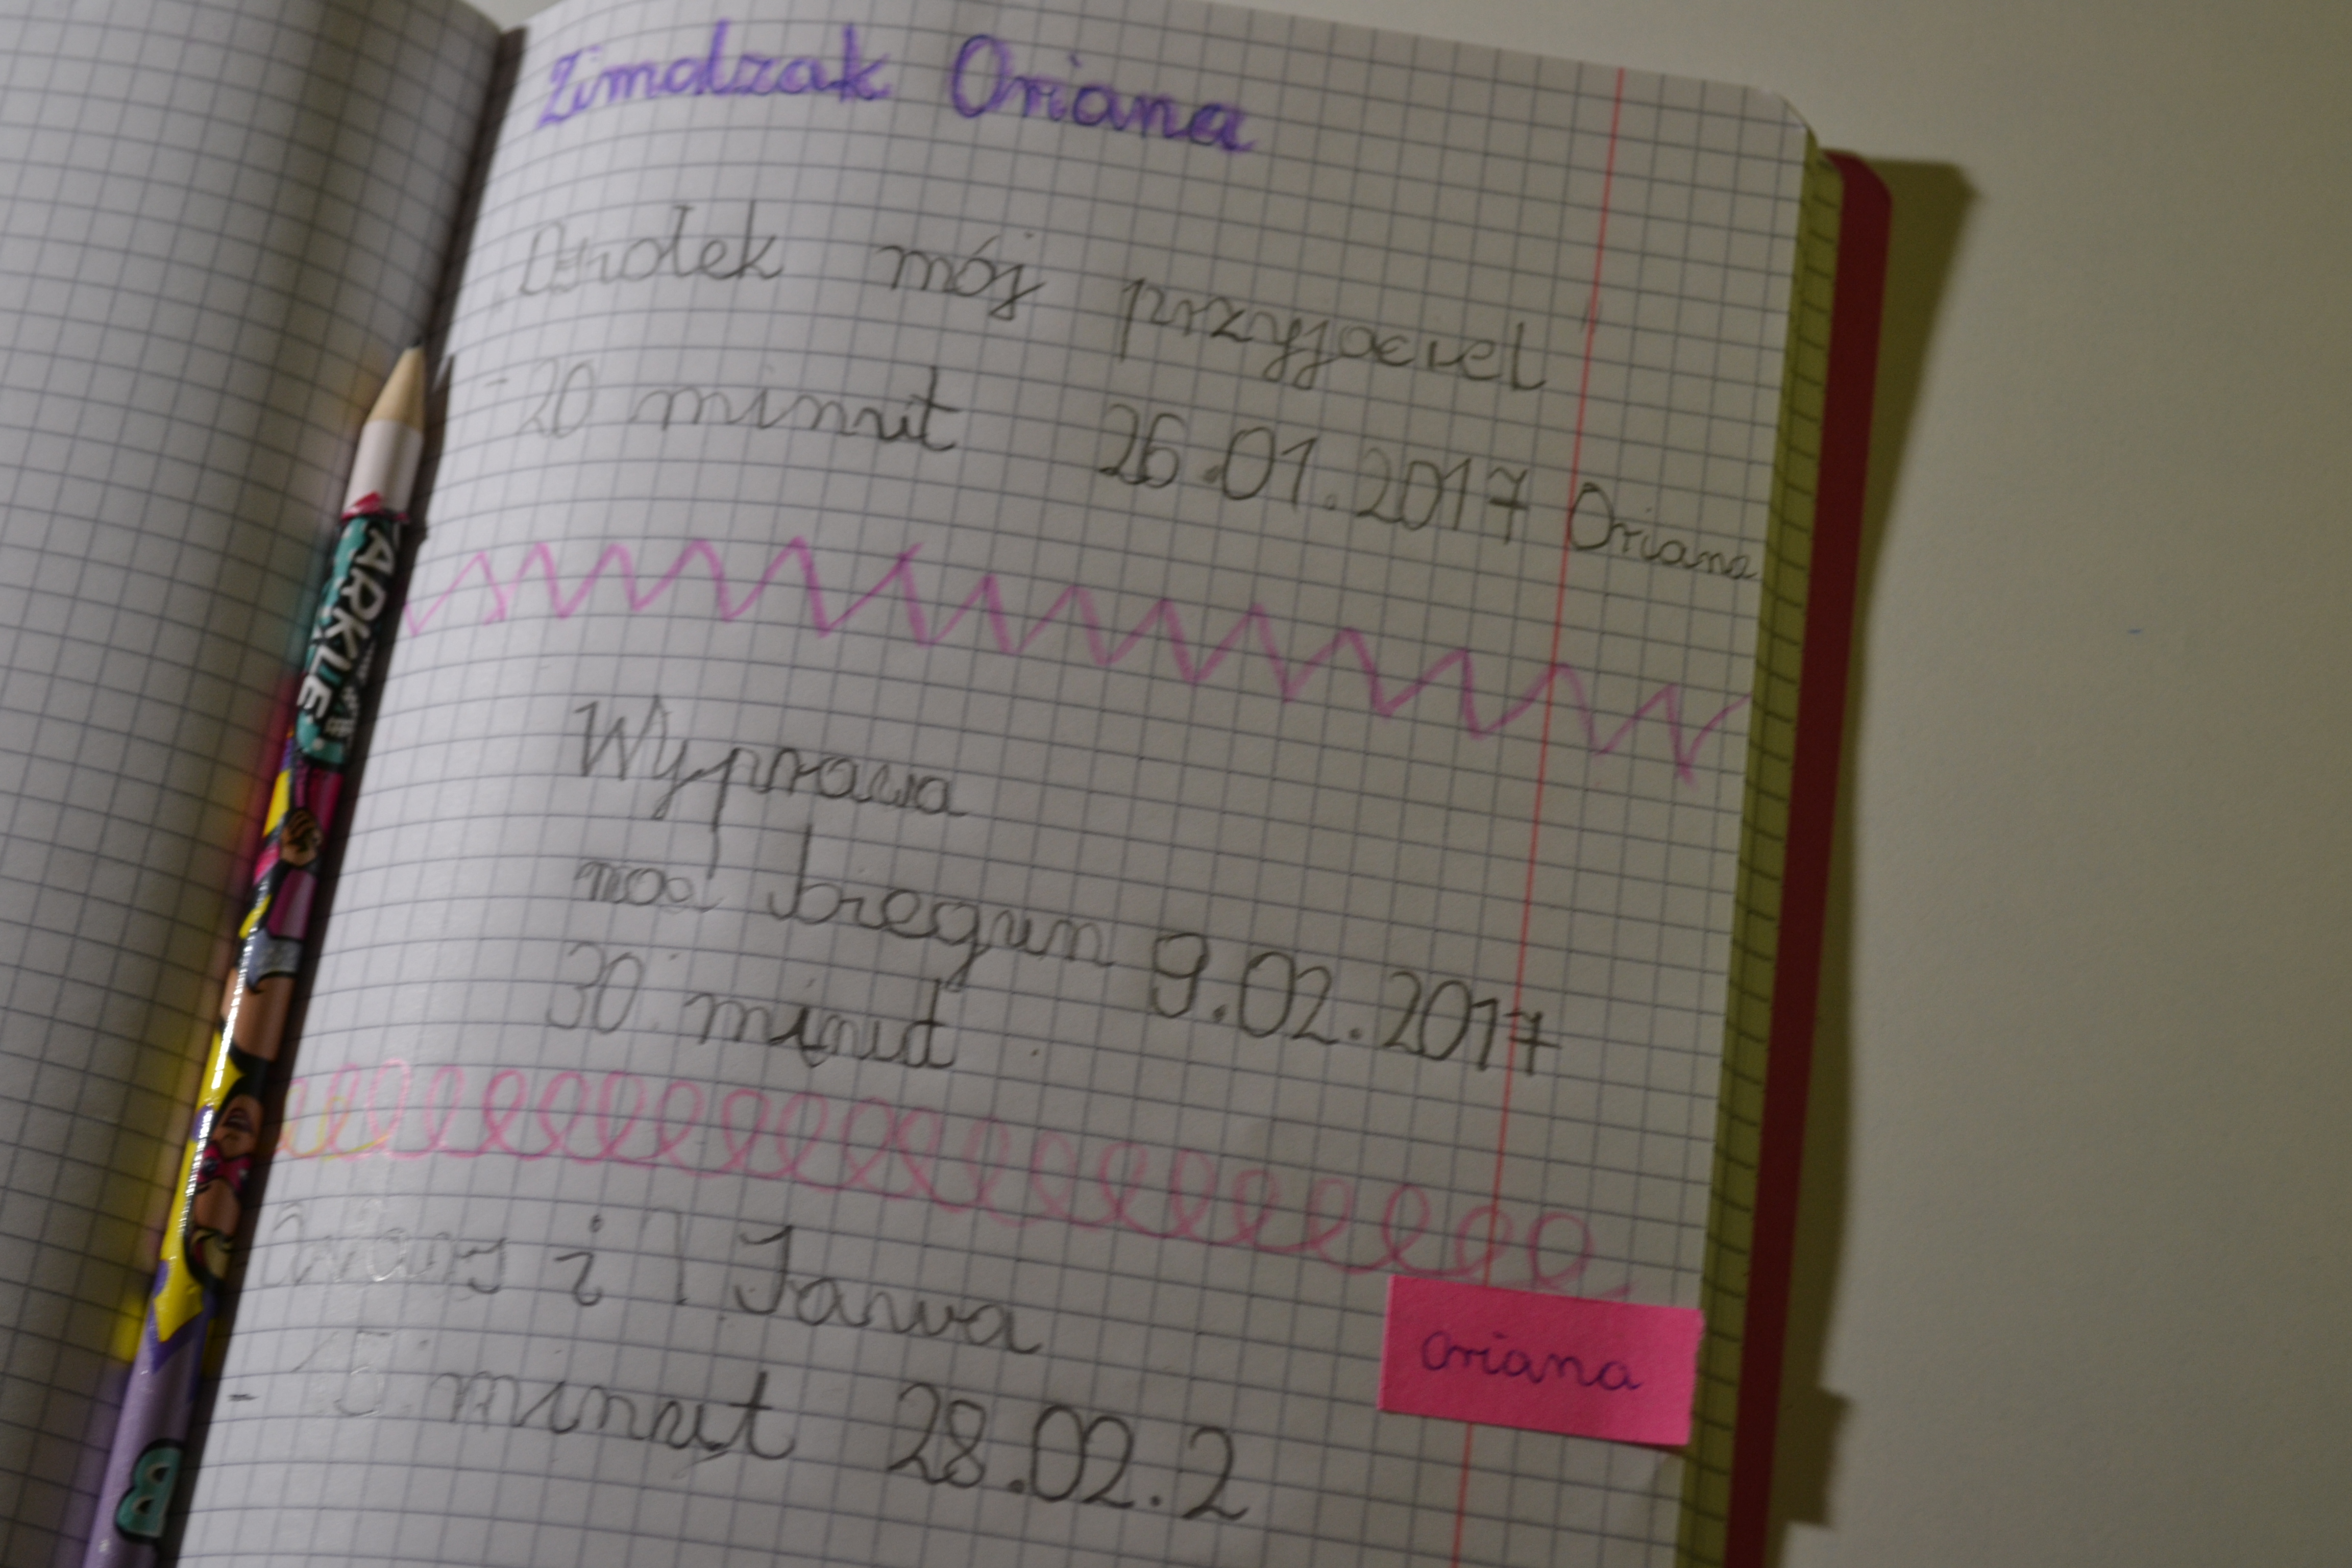 Zimolzak Oriana
mój przyjaciel
- 20 minut 26.01.2017 Oriana
Wyprawa
na biegun 9.02.2017
30 minut
i Jawa
oriana
- 15 minut 28.02.2
ARKLE
B